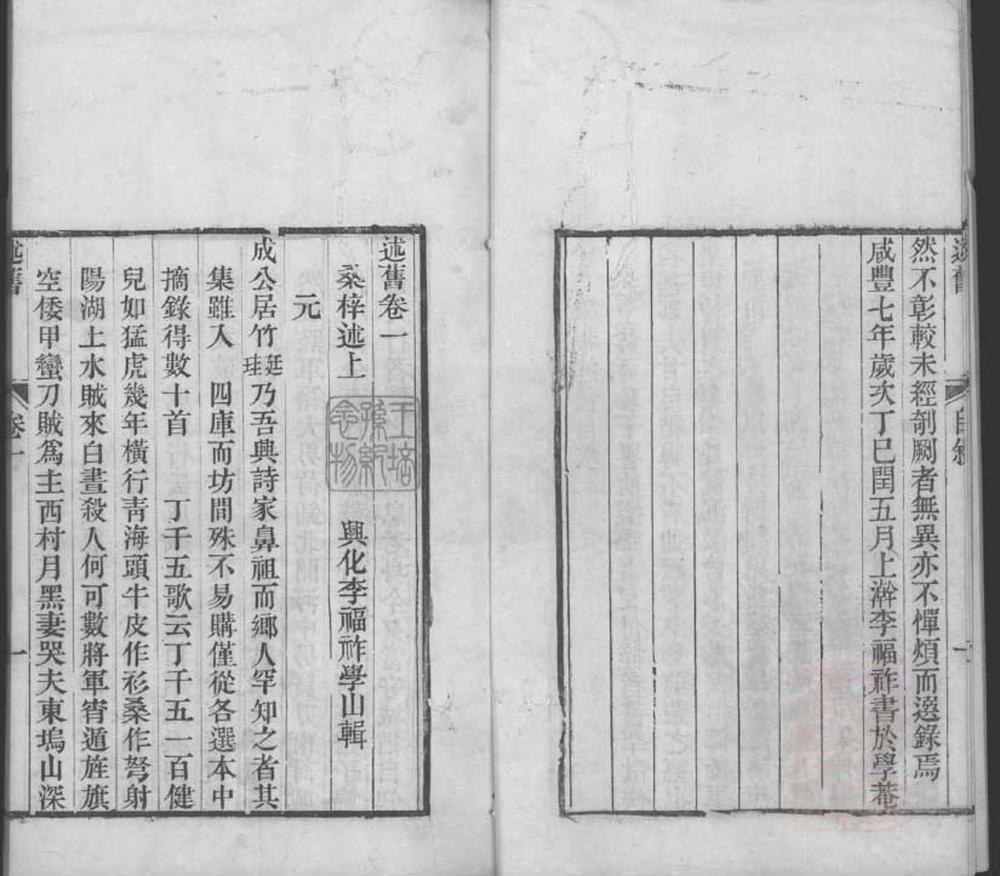 然不彰較未經剞劂者無異亦不憚煩而選錄焉
咸豐七年歲次丁巳閏五月上澣李福祚書於學菴
述舊卷一
桑梓述上
興化李福祚學山輯
元
成公居竹廷珪乃吾興詩家鼻祖而鄉人罕知之者其
集雖入 四庫而坊間殊不易購僅從各選本中
摘錄得數十首 丁千五歌云丁千五一百健
兒如猛虎幾年橫行青海頭牛皮作衫桑作弩射
陽湖上水賊來白晝殺人何可數將軍宵遁旌旗
空倭甲蠻刀賊爲主西村月黑妻哭夫東塢山深
述舊
卷一
一